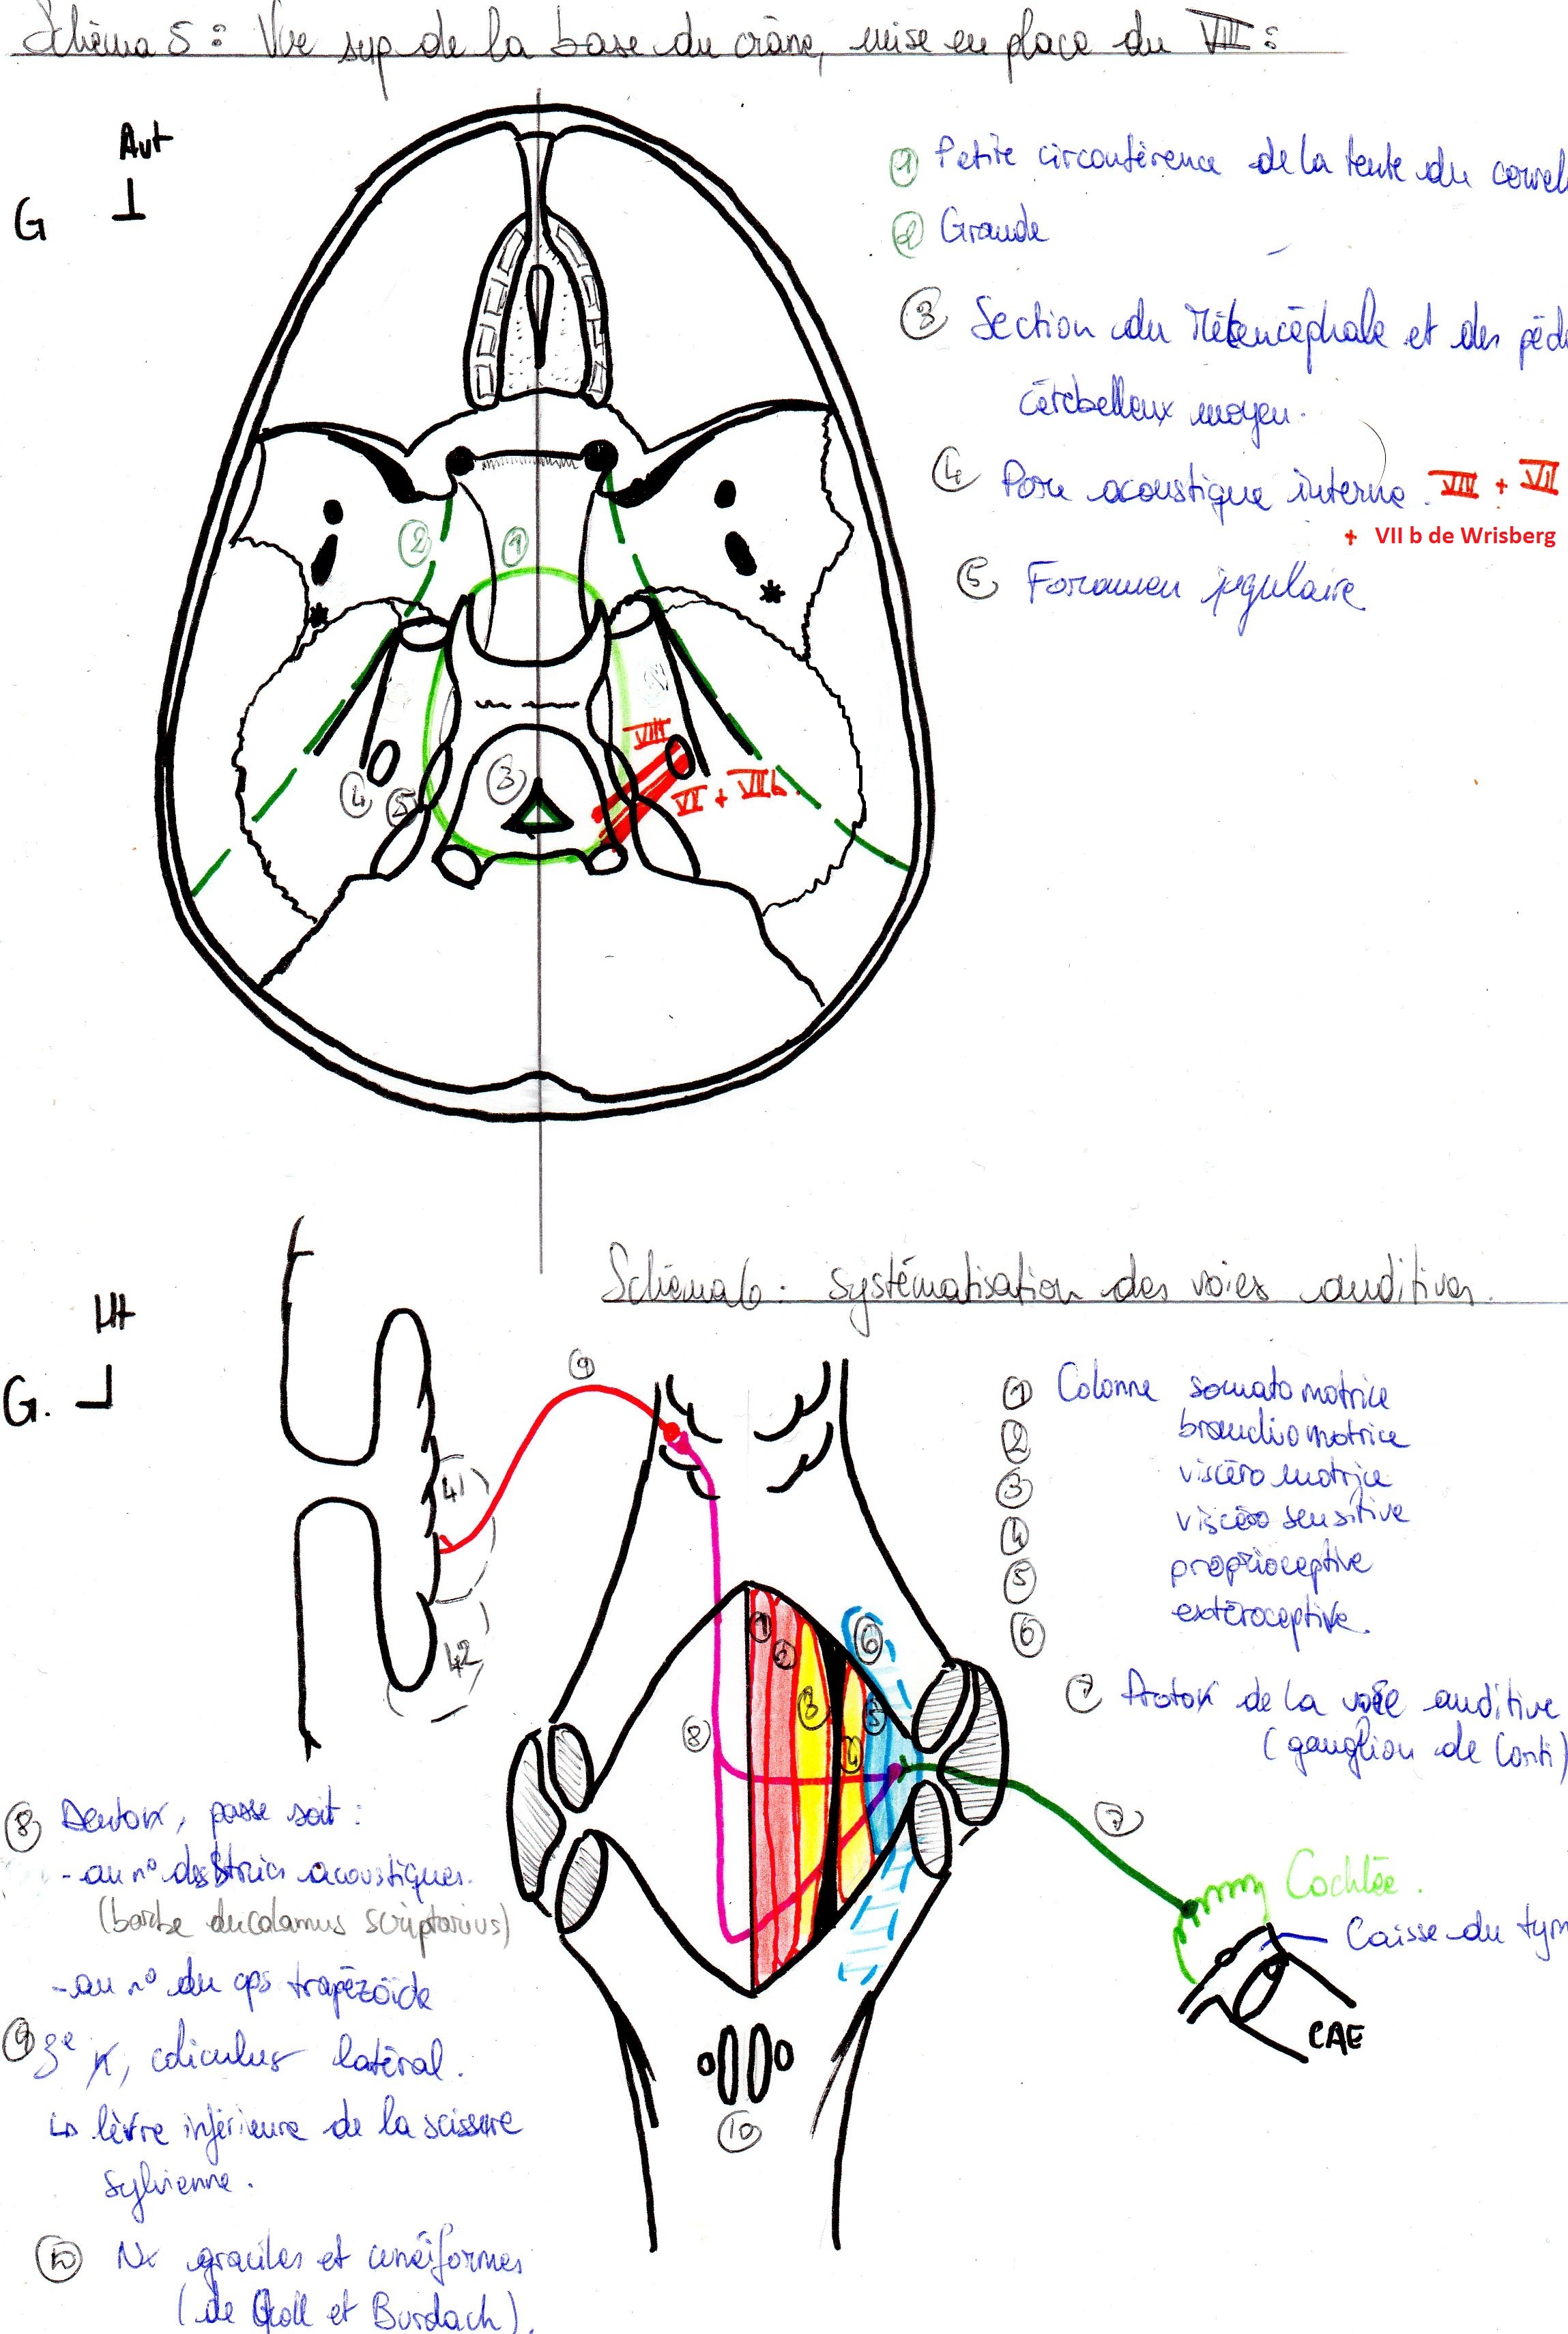 Schéma 5 : Vue sup de la base du crâne, mise en place du VIII :
Ant
G
① Petite circonférence de la tente du cervel
② Grande
③ Section du Métencéphale et des péd
cérébelleux moyen.
④ Pore acoustique interne. VIII + VII
+ VII b de Wrisberg
⑤ Foramen jugulaire
②
①
VIII
③
④
⑤
VII + VIIb.
Schéma 6 : Systématisation des voies auditives.
Ht
G.
⑨
41
42
① Colonne somato motrice
② branchio motrice
③ viscéro motrice
④ viscéro sensitive
⑤ proprioceptive
⑥ extéroceptive.
①
②
③
④
⑤
⑥
⑧
⑦ Proton de la voie auditive
(ganglion de Corti)
⑦
Cochlée.
Caisse du tym
CAE
⑧ Deuton, passe soit :
- au n° des Stries acoustiques.
(barbe du calamus scriptorius)
- au n° du cps trapézoïde
⑨ 3e N, coliculus latéral.
↳ lèvre inférieure de la scissure
sylvienne.
⑩
⑩ Nx graciles et cunéiformes
(de Goll et Burdach).